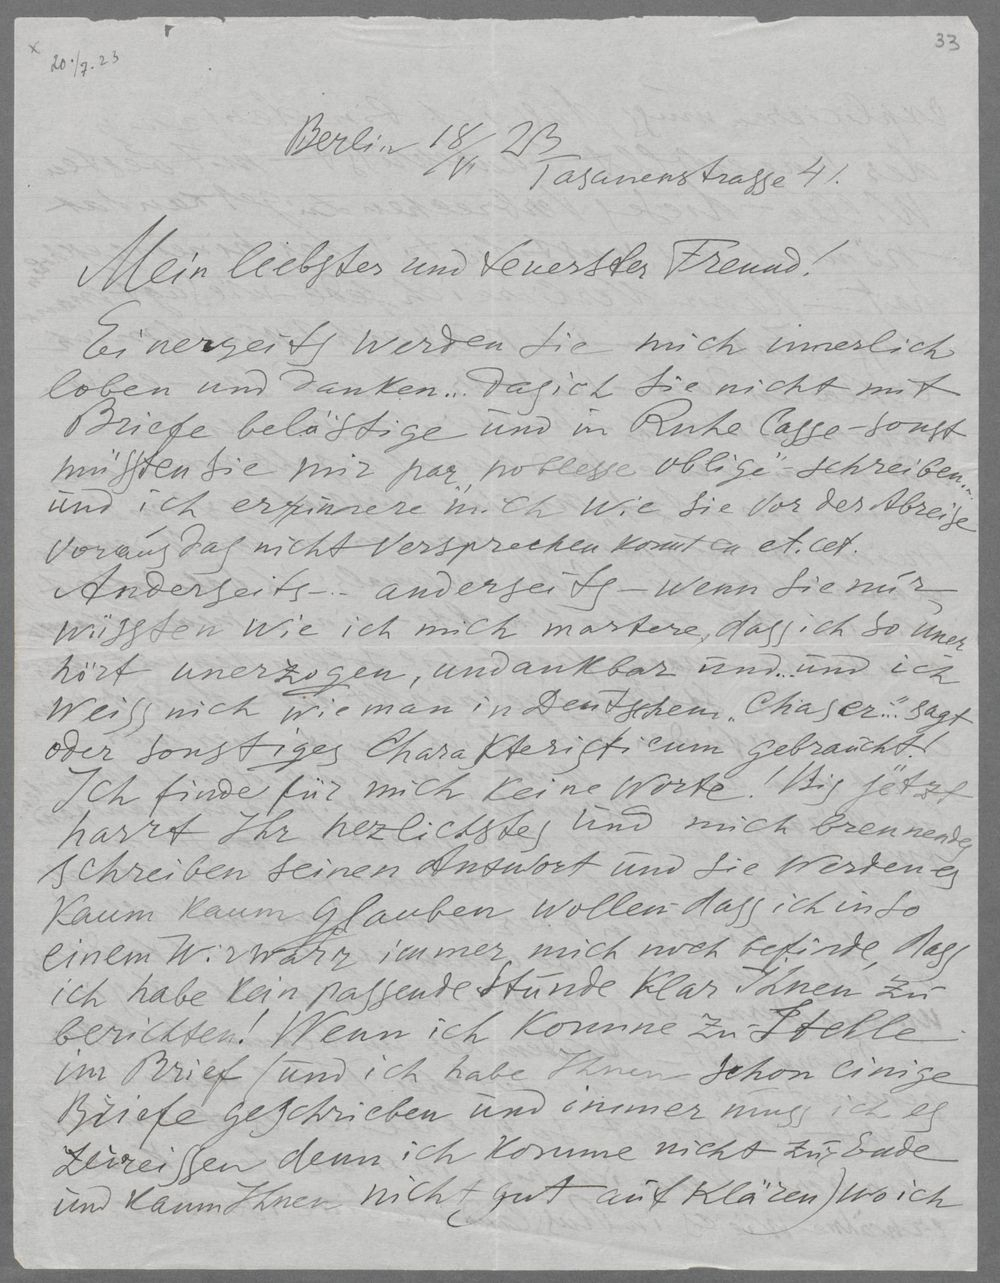 x
20./7.23
33
Berlin 18/VI 23
Fasanenstrasse 41.
Mein liebster und teuerster Freund!
Einerseits werden Sie mich innerlich
loben und danken... dass ich Sie nicht mit
Briefe belästige und in Ruhe lasse - sonst
müssten Sie mir par „noblesse oblige" - schreiben...
und ich erinnere mich wie Sie vor der Abreise
voraus das nicht versprechen konnten et. cet.
Anderseits -.- anderseits - wenn Sie nur
wüssten wie ich mich martere, dass ich so uner
hört unerzogen, undankbar und... und ich
weiss nich wie man in Deutschen „Chaser..." sagt
oder sonstiges Charakteristicum gebraucht!
Ich finde für mich keine Worte! Bis jetzt
harrt Ihr herzlichstes und mich brennendes
schreiben seinen Antwort und Sie werden es
kaum kaum glauben wollen dass ich in so
einem Wirwarr immer mich noch befinde, dass
ich habe kein passende Stunde klar Ihnen zu
berichten! Wenn ich komme zu Stelle
im Brief (und ich habe Ihnen schon einige
Briefe geschrieben und immer muss ich es
zerreissen denn ich komme nicht zu Ende
und kaum Ihnen nicht gut auf klären) wo ich